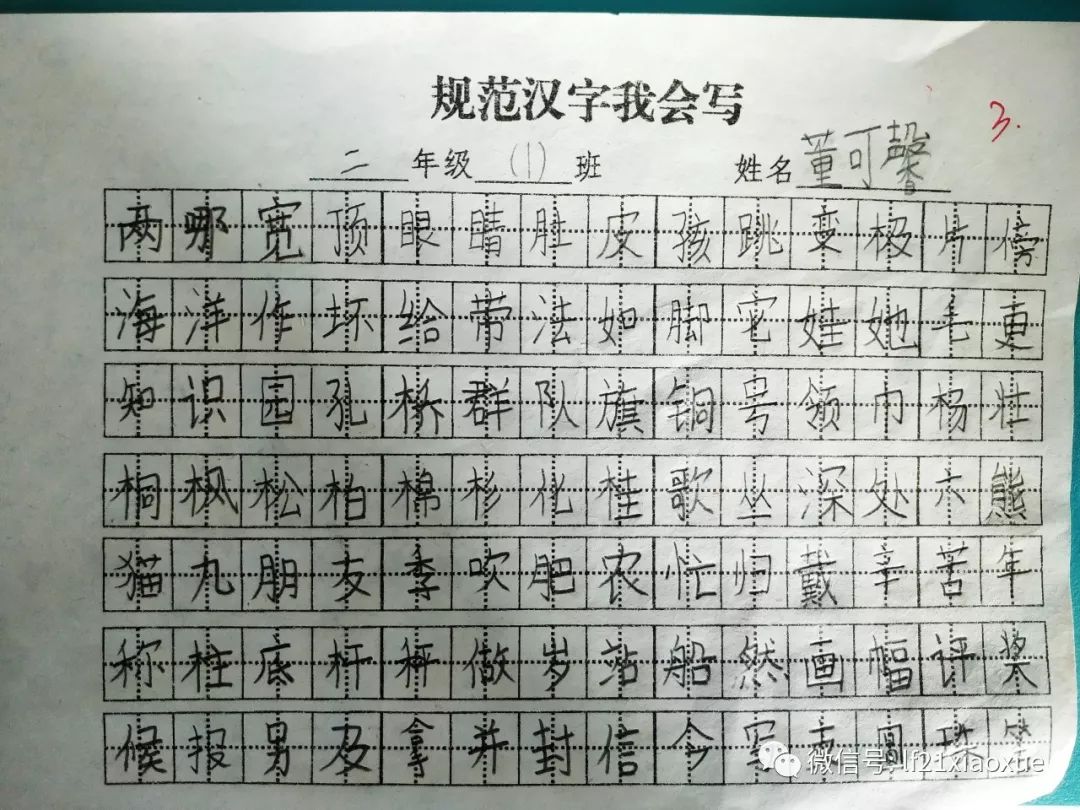 规范汉字我会写
3.
二 年级 (1) 班 姓名 董可馨
两哪宽顶眼睛肚皮孩跳变极片傍
海洋作坏给带法如脚它娃她毛更
知识园孔桥群队旗铜号领巾杨壮
桐枫松柏棉杉化桂歌丛深处六熊
猫九朋友季吹肥农忙归戴辛苦年
称柱底杆秤做岁站船然画幅评奖
候报另及拿并封信今写圆珠笔
微信号: lf21xiaoxue